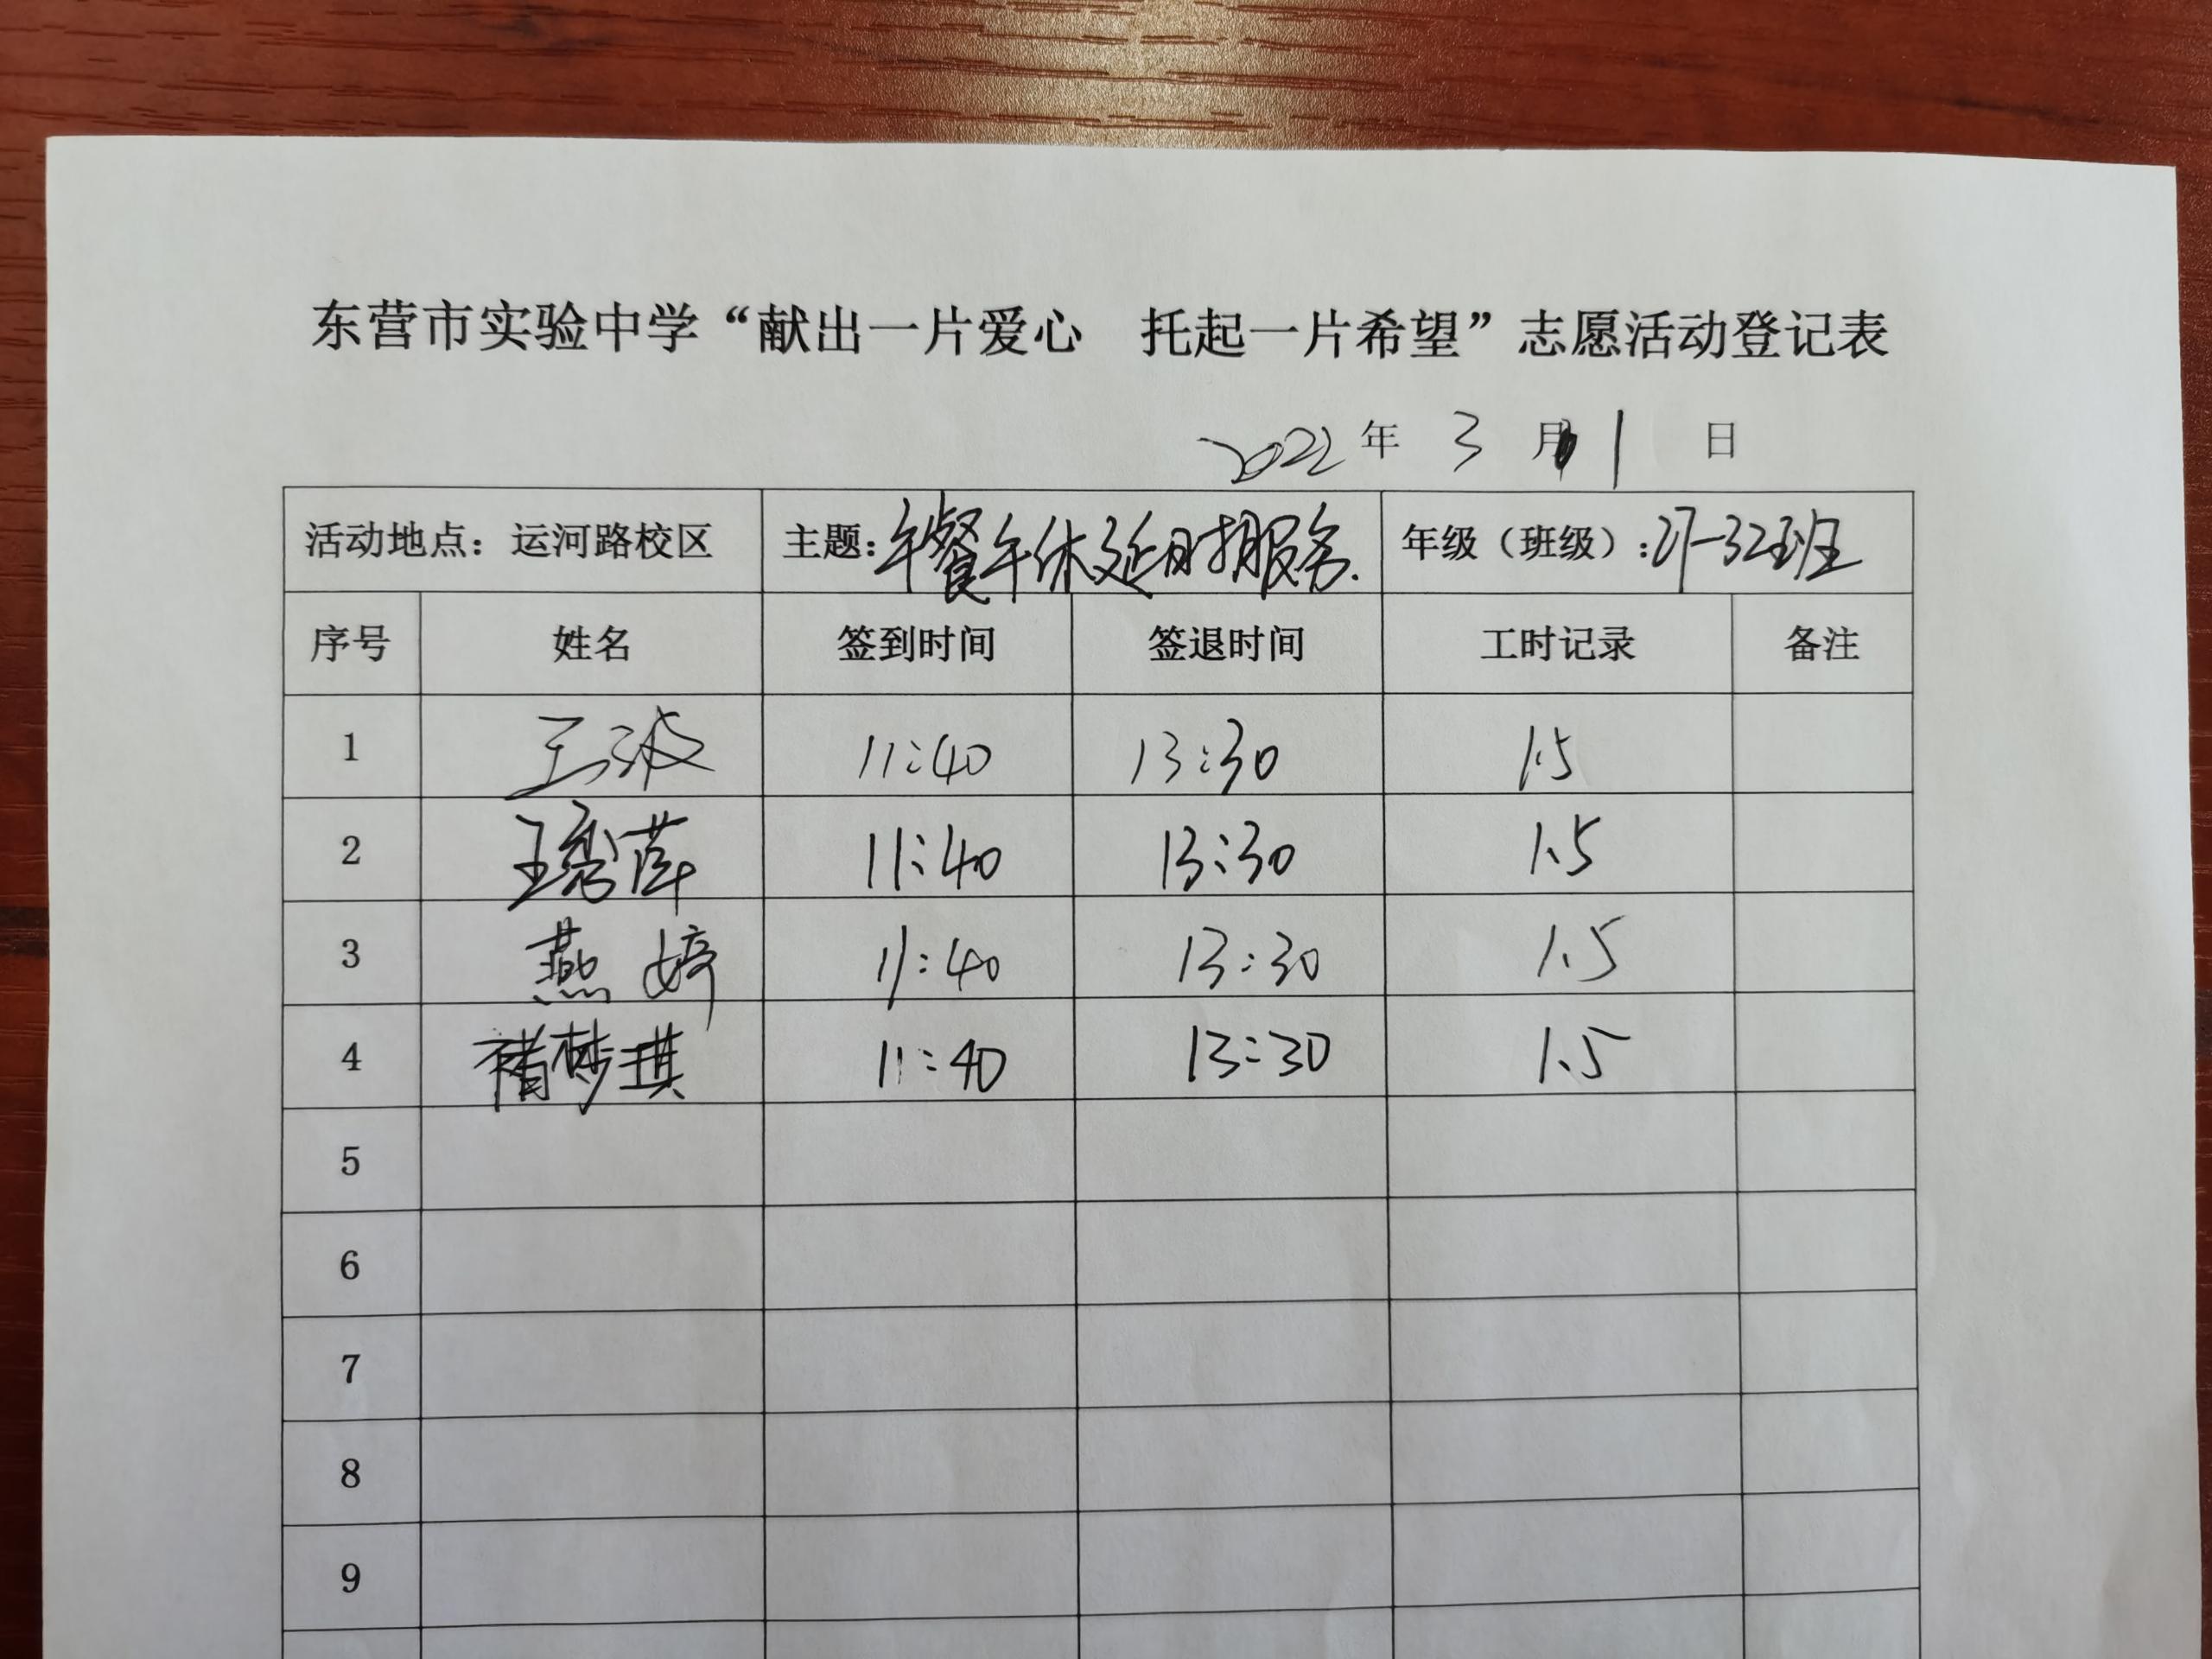 东营市实验中学“献出一片爱心 托起一片希望”志愿活动登记表
2022 年 3 月 1 日
活动地点：运河路校区 主题：午餐午休延时服务. 年级（班级）：27-32班
序号 姓名 签到时间 签退时间 工时记录 备注
1 王波 11:40 13:30 1.5
2 王秀萍 11:40 13:30 1.5
3 燕婷 11:40 13:30 1.5
4 褚梦琪 11:40 13:30 1.5
5
6
7
8
9